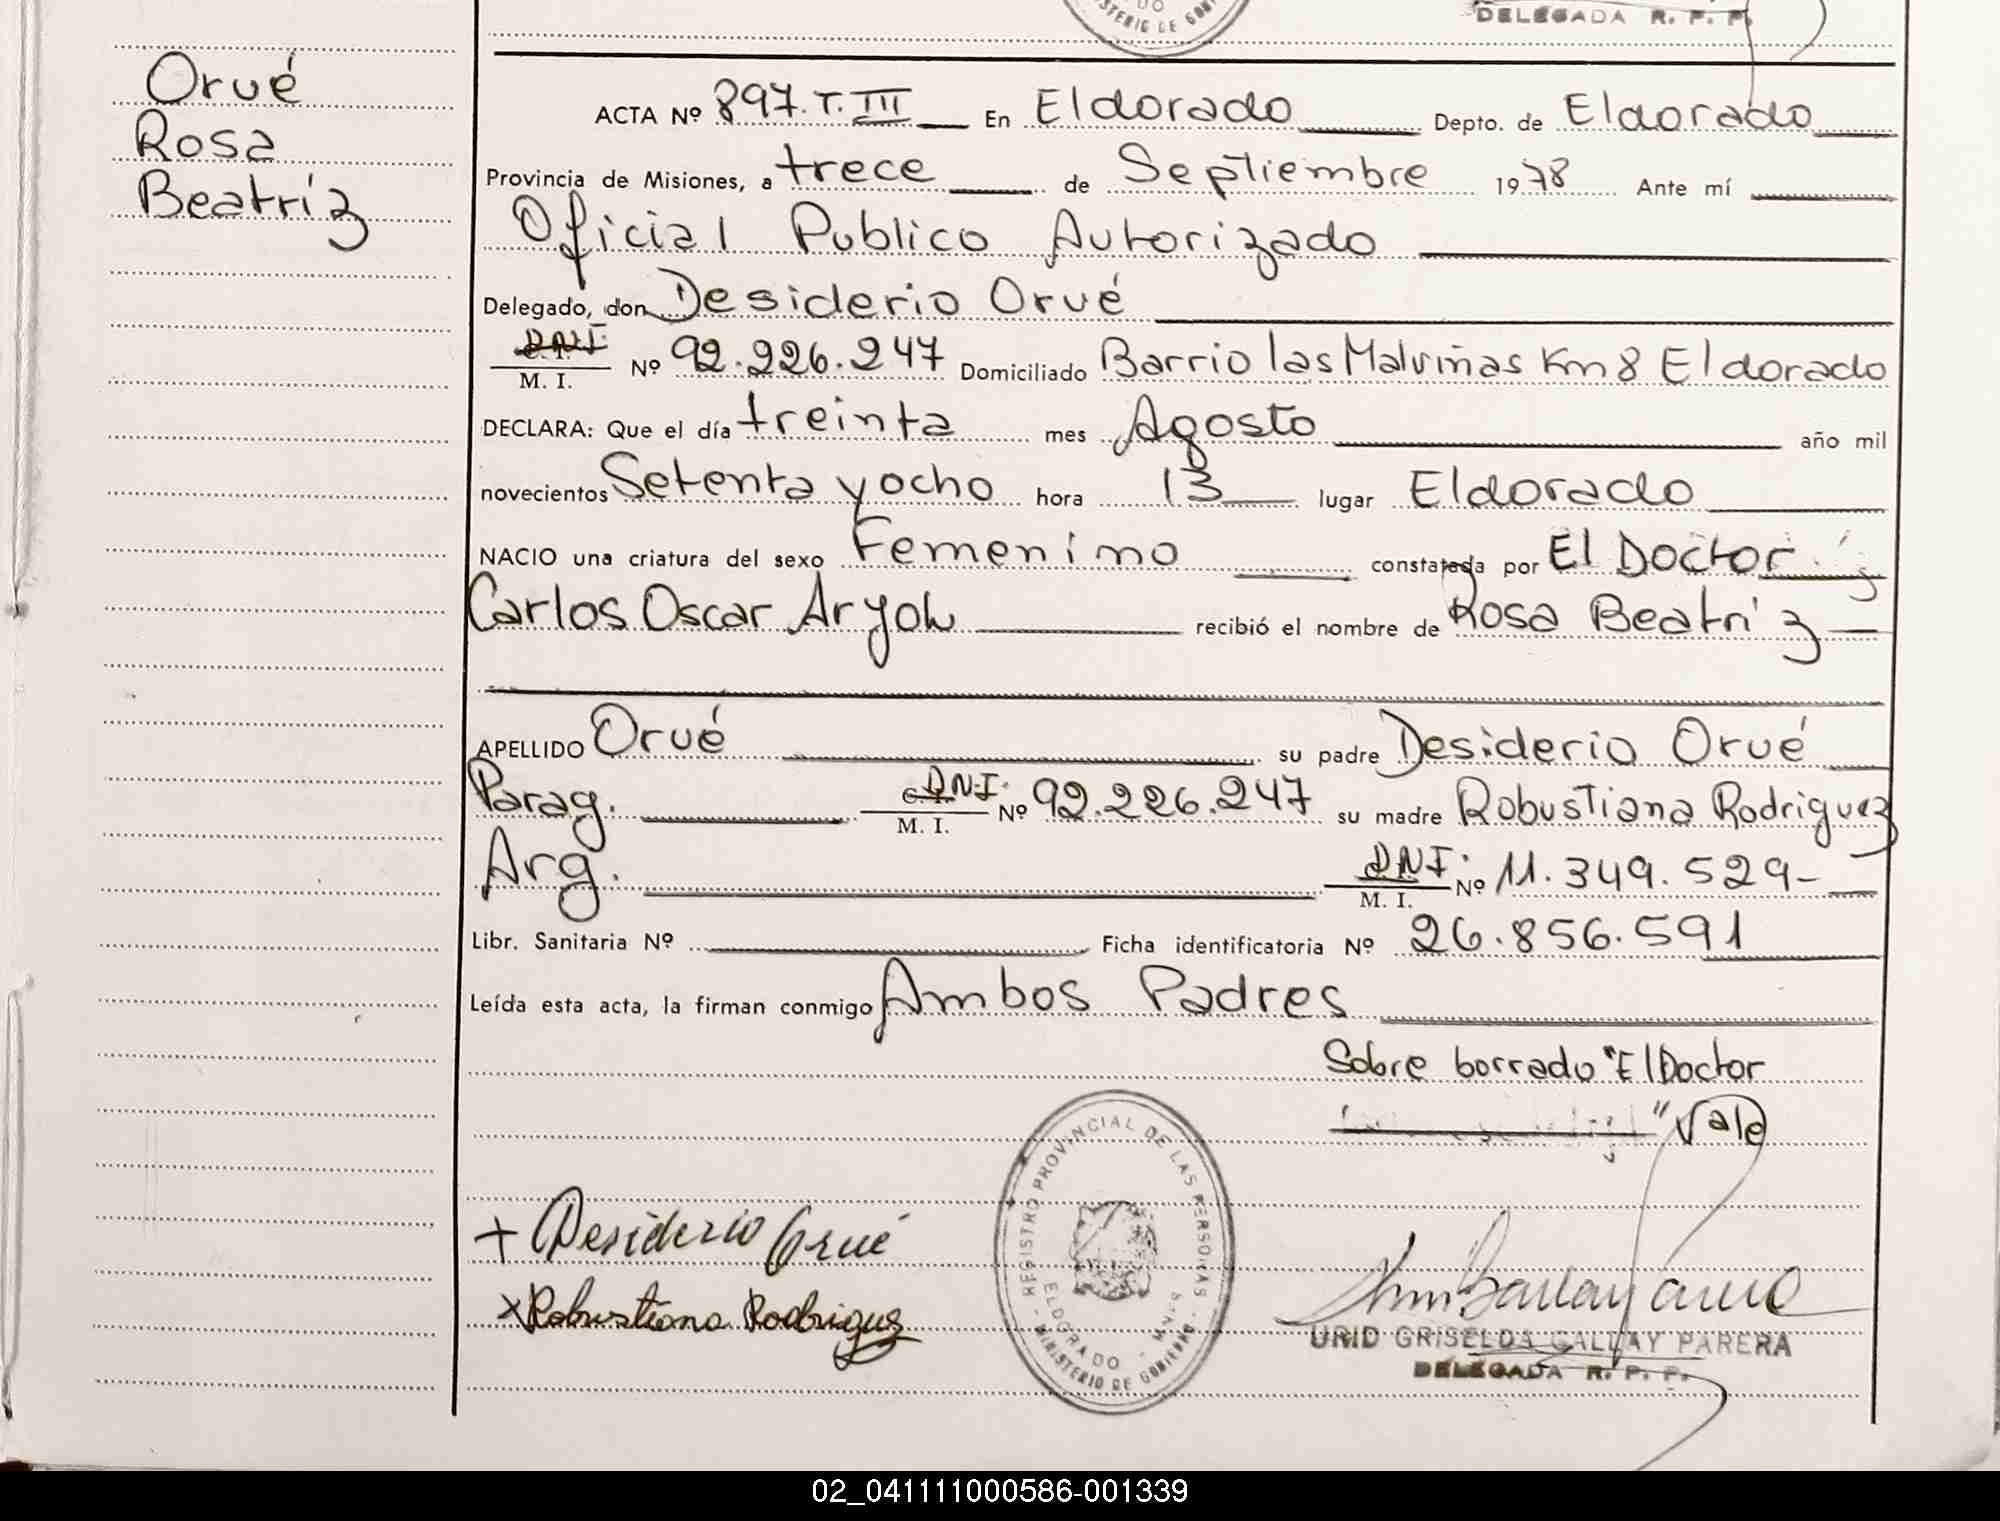 DELEGADA R. P. P.
Orué
Rosa
Beatriz
ACTA Nº 897. T. III En Eldorado Depto. de Eldorado
Provincia de Misiones, a trece de Septiembre 1978 Ante mí
Oficial Publico Autorizado
Delegado, don Desiderio Orué
DNI. M. I. Nº 92.226.247 Domiciliado Barrio las Malviñas Km 8 Eldorado
DECLARA: Que el día treinta mes Agosto año mil
novecientos Setenta y ocho hora 13 lugar Eldorado
NACIO una criatura del sexo Femenino constatada por El Doctor
Carlos Oscar recibió el nombre de Rosa Beatriz
APELLIDO Orué su padre Desiderio Orué
Parag. DNI. M. I. Nº 92.226.247 su madre Robustiana Rodriguez
Arg. DNI. M. I. Nº 11.349.529-
Libr. Sanitaria Nº Ficha identificatoria Nº 26.856.591
Leída esta acta, la firman conmigo Ambos Padres
Sobre borrado "El Doctor
" Vale
REGISTRO PROVINCIAL DE LAS PERSONAS
ELDORADO - MNES
MINISTERIO DE GOBIERNO
+ Desiderio Orué
x Robustiana Rodriguez
URID GRISELDA GALLAY PARERA
DELEGADA R. P. P.
02_041111000586-001339